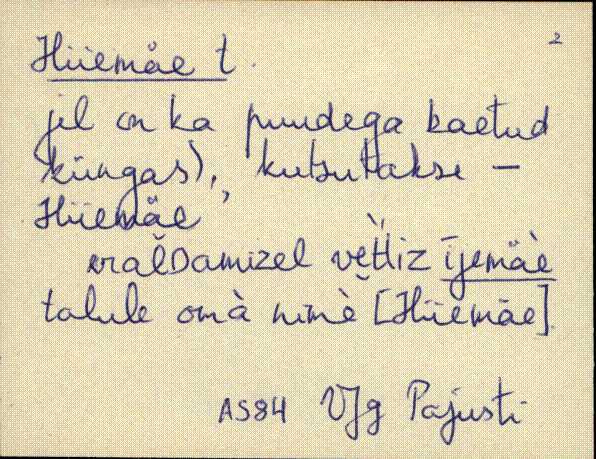 2
Hiiemäe t.
jel on ka puudega kaetud
küngas), kutsutakse –
Hiiemäe
vettiz ījemäe
talule omà nimè [Hiiemäe].
AS84 VJg Pajusti